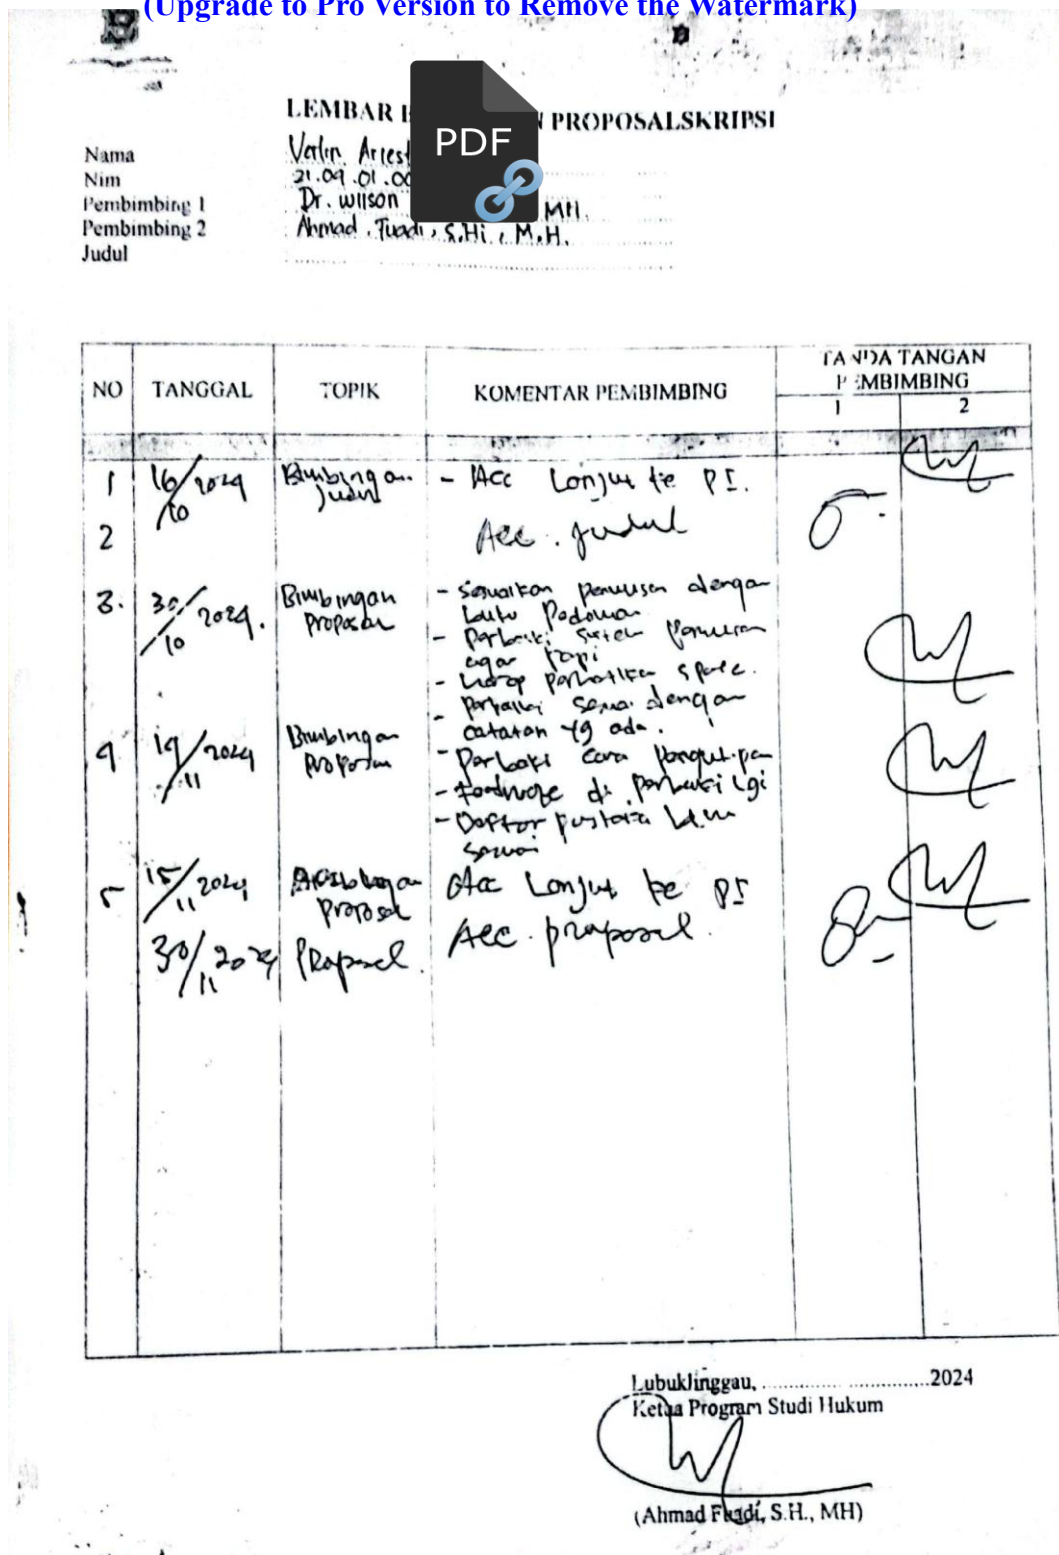 (Upgrade to Pro Version to Remove the Watermark)
LEMBAR N PROPOSALSKRIPSI
PDF
Nama Verlin Ariest
Nim 21.09.01.00
Pembimbing 1 Dr. Wilson MH.
Pembimbing 2 : Ahmad Fuadi, S.Hi, M.H.
Judul
NO TANGGAL TOPIK KOMENTAR PEMBIMBING TANDA TANGAN PEMBIMBING
1 2
1 16/10 2024 Bimbingan Judul - Acc Lanjut ke PI.
2 Acc. Judul
3. 30/10 2024. Bimbingan Proposal - Sesuaikan penulisan dengan
buku Pedoman
- Perbaiki sistem Penulisan
agar rapi
- Harap perhatikan space.
- Perbaiki sesuai dengan
catatan yg ada.
4 19/11 2024 Bimbingan Proposal - Perbaiki cara pengutipan
- Footnote di perbaiki lgi
- Daftar pustaka
sesuai
5 15/11 2024 Bimbingan Proposal Acc Lanjut ke PI
30/11 2024 Proposal. Acc. proposal.
Lubuklinggau, 2024
Ketua Program Studi Hukum
(Ahmad Fuadi, S.H., MH)